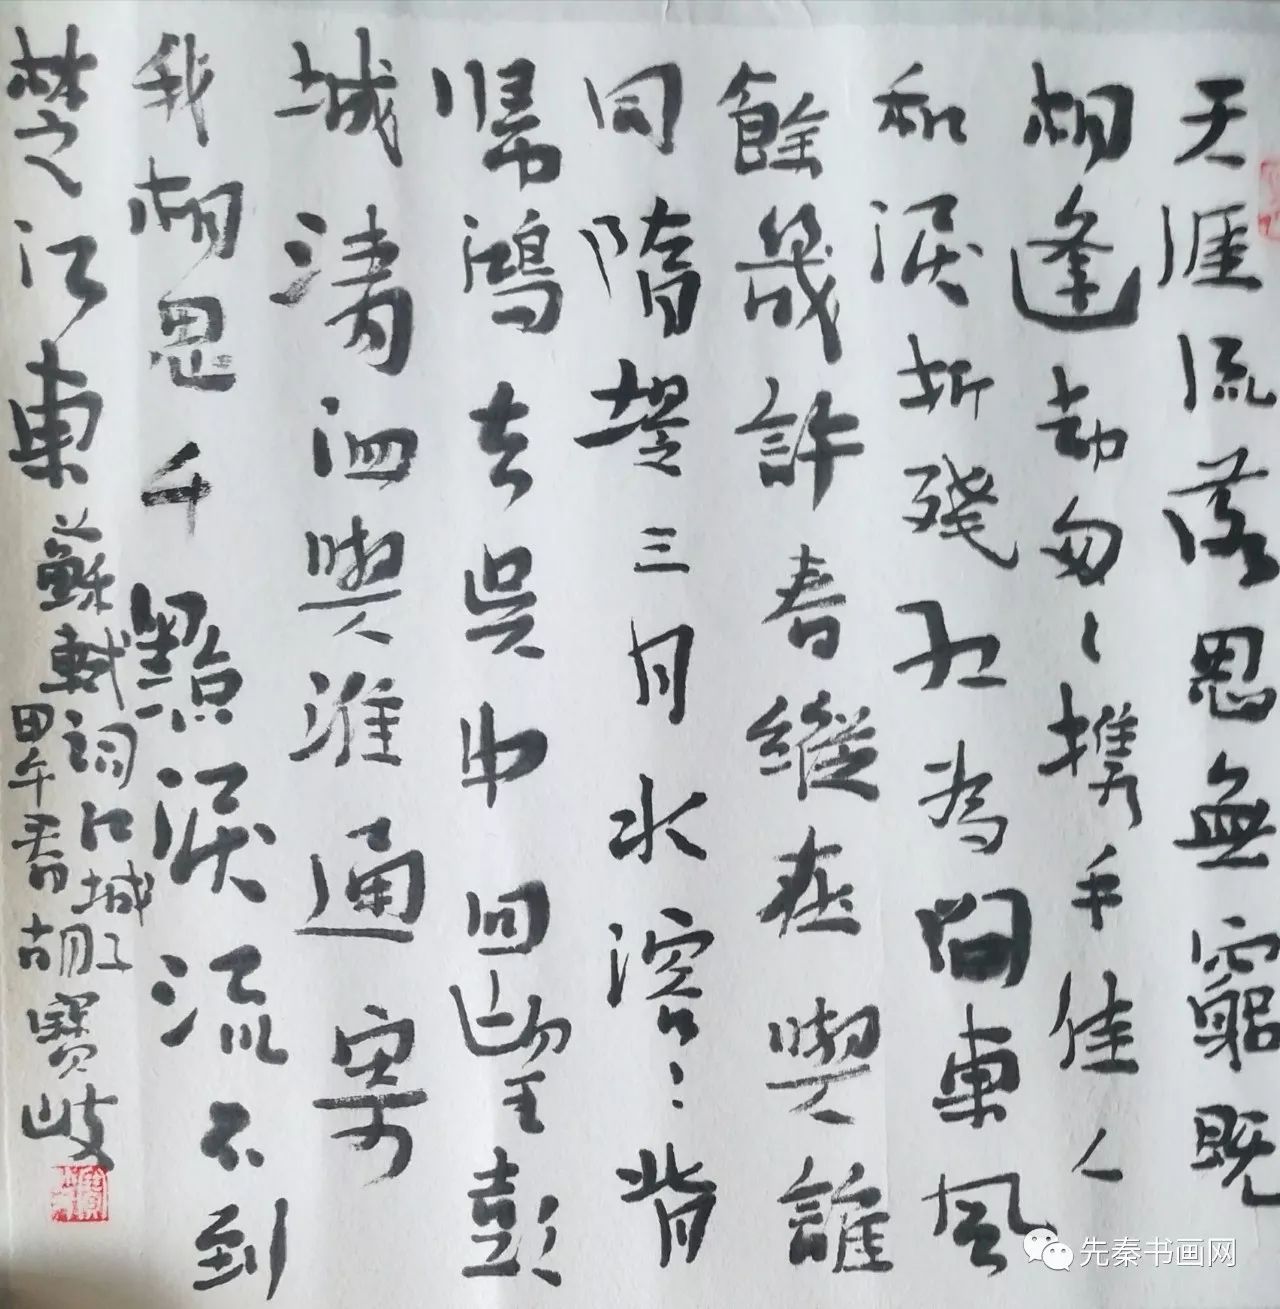 天涯流落思無窮既
相逢却匆〻携手佳人
和淚折殘红為問東風
餘幾許春縱在與誰
同隋堤三月水溶〻背
歸鴻去吳中回望彭
城清泗與淮通寄
我相思千點淚流不到
楚江東
蘇軾詞江城子
甲午春胡寶岐
先秦书画网